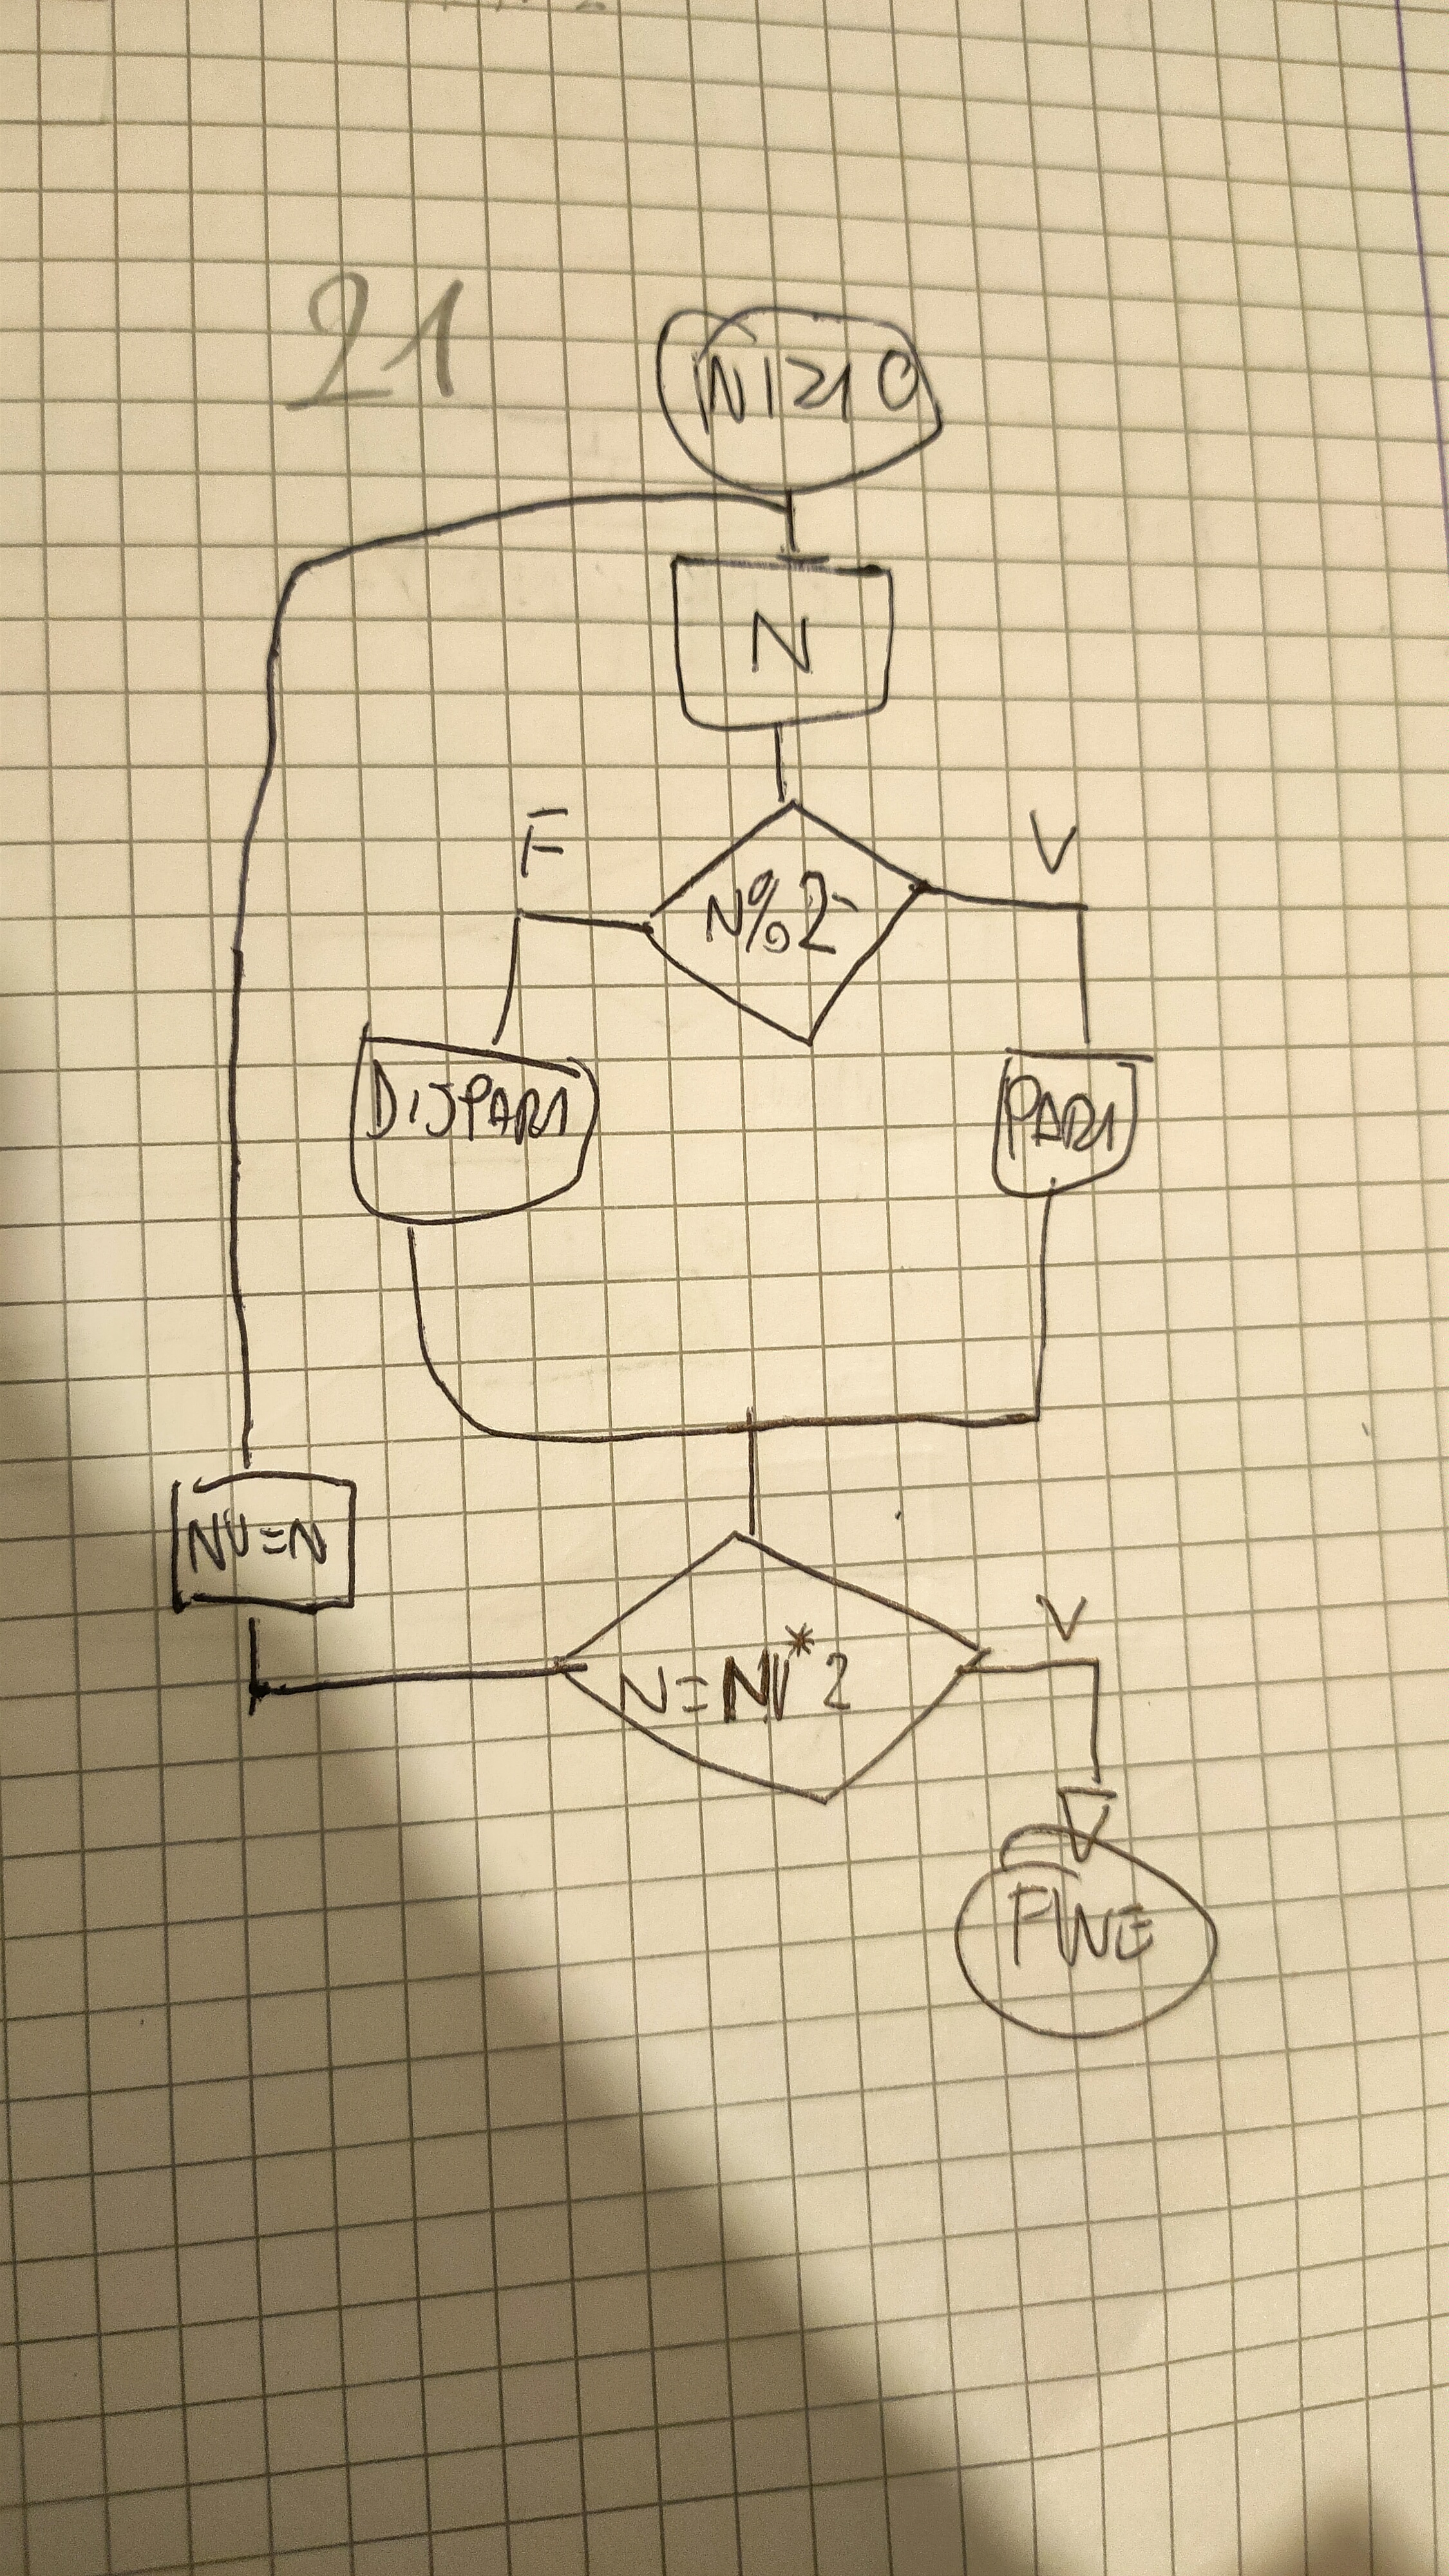 21
INIZIO
N
F
V
N%2
DISPARI
PARI
NV=N
N=NV*2
V
FINE